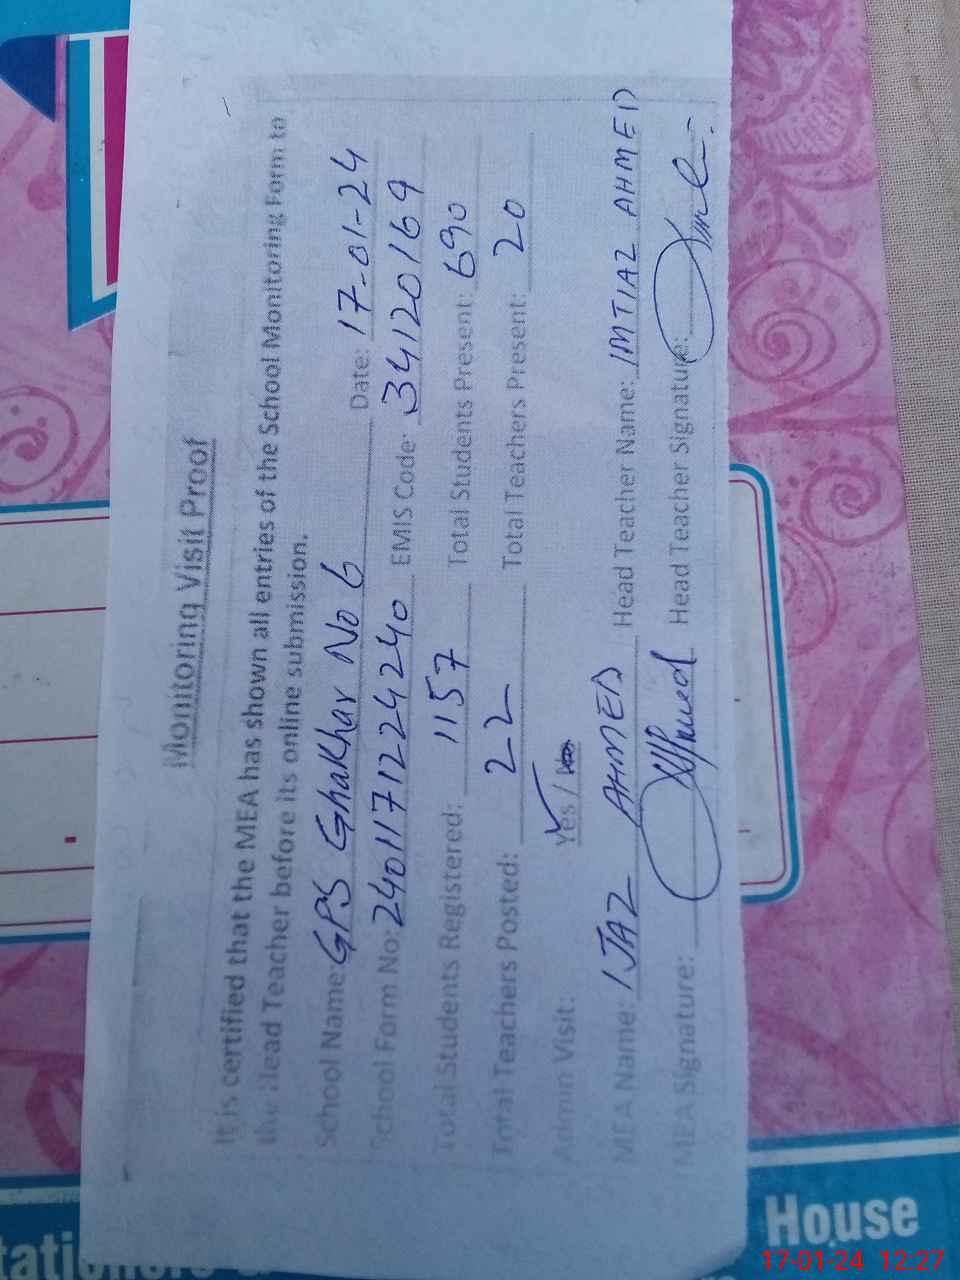 Monitoring Visit Proof
It is certified that the MEA has shown all entries of the School Monitoring Form to
the Head Teacher before its online submission.
School Name: GPS Ghakhar No 6 Date: 17-01-24
School Form No: 2401171224240 EMIS Code: 34120169
Total Students Registered: 1157 Total Students Present: 690
Total Teachers Posted: 22 Total Teachers Present: 20
Admin Visit: Yes / No
MEA Name: IJAZ AHMED Head Teacher Name: IMTIAZ AHMED
MEA Signature: Head Teacher Signature:
House
17-01-24 12:27